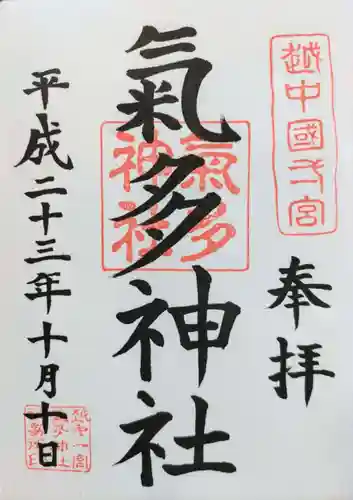 越中國一宮
奉拝
氣多神社
氣多神社
平成二十三年十月十日
越中一宮